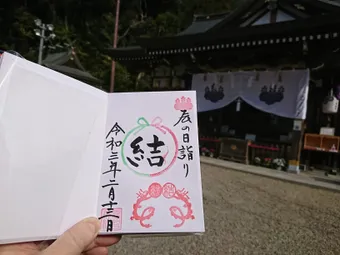 辰の日詣り
結
令和三年二月十三日